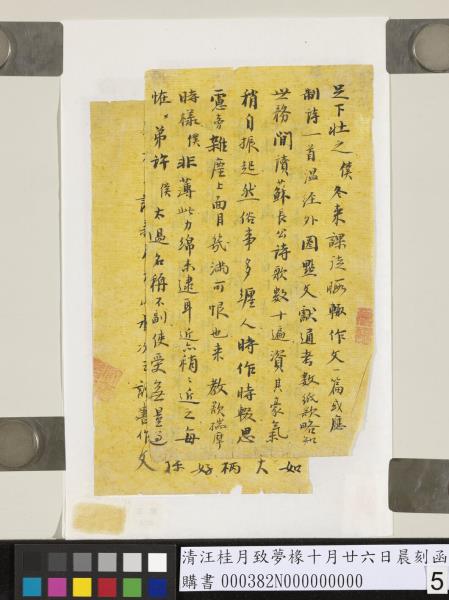 足下壯之僕冬來課徒暇輙作文一篇或應
制詩一首溫注外圈點文獻通考數紙欲略知
世務間讀蘇長公詩歌數十遍資其豪氣
稍自振起然俗事多纏人時作時輟思
慮旁雜塵上面目氣滿可恨也來教欲揣摩
時樣僕非薄此力綿未逮耳近亦稍々近之每
恠弟許僕太過名稱不副使受
如大柄好
書作文
清汪桂月致夢橡十月廿六日晨刻函
購書 000382N000000000
5